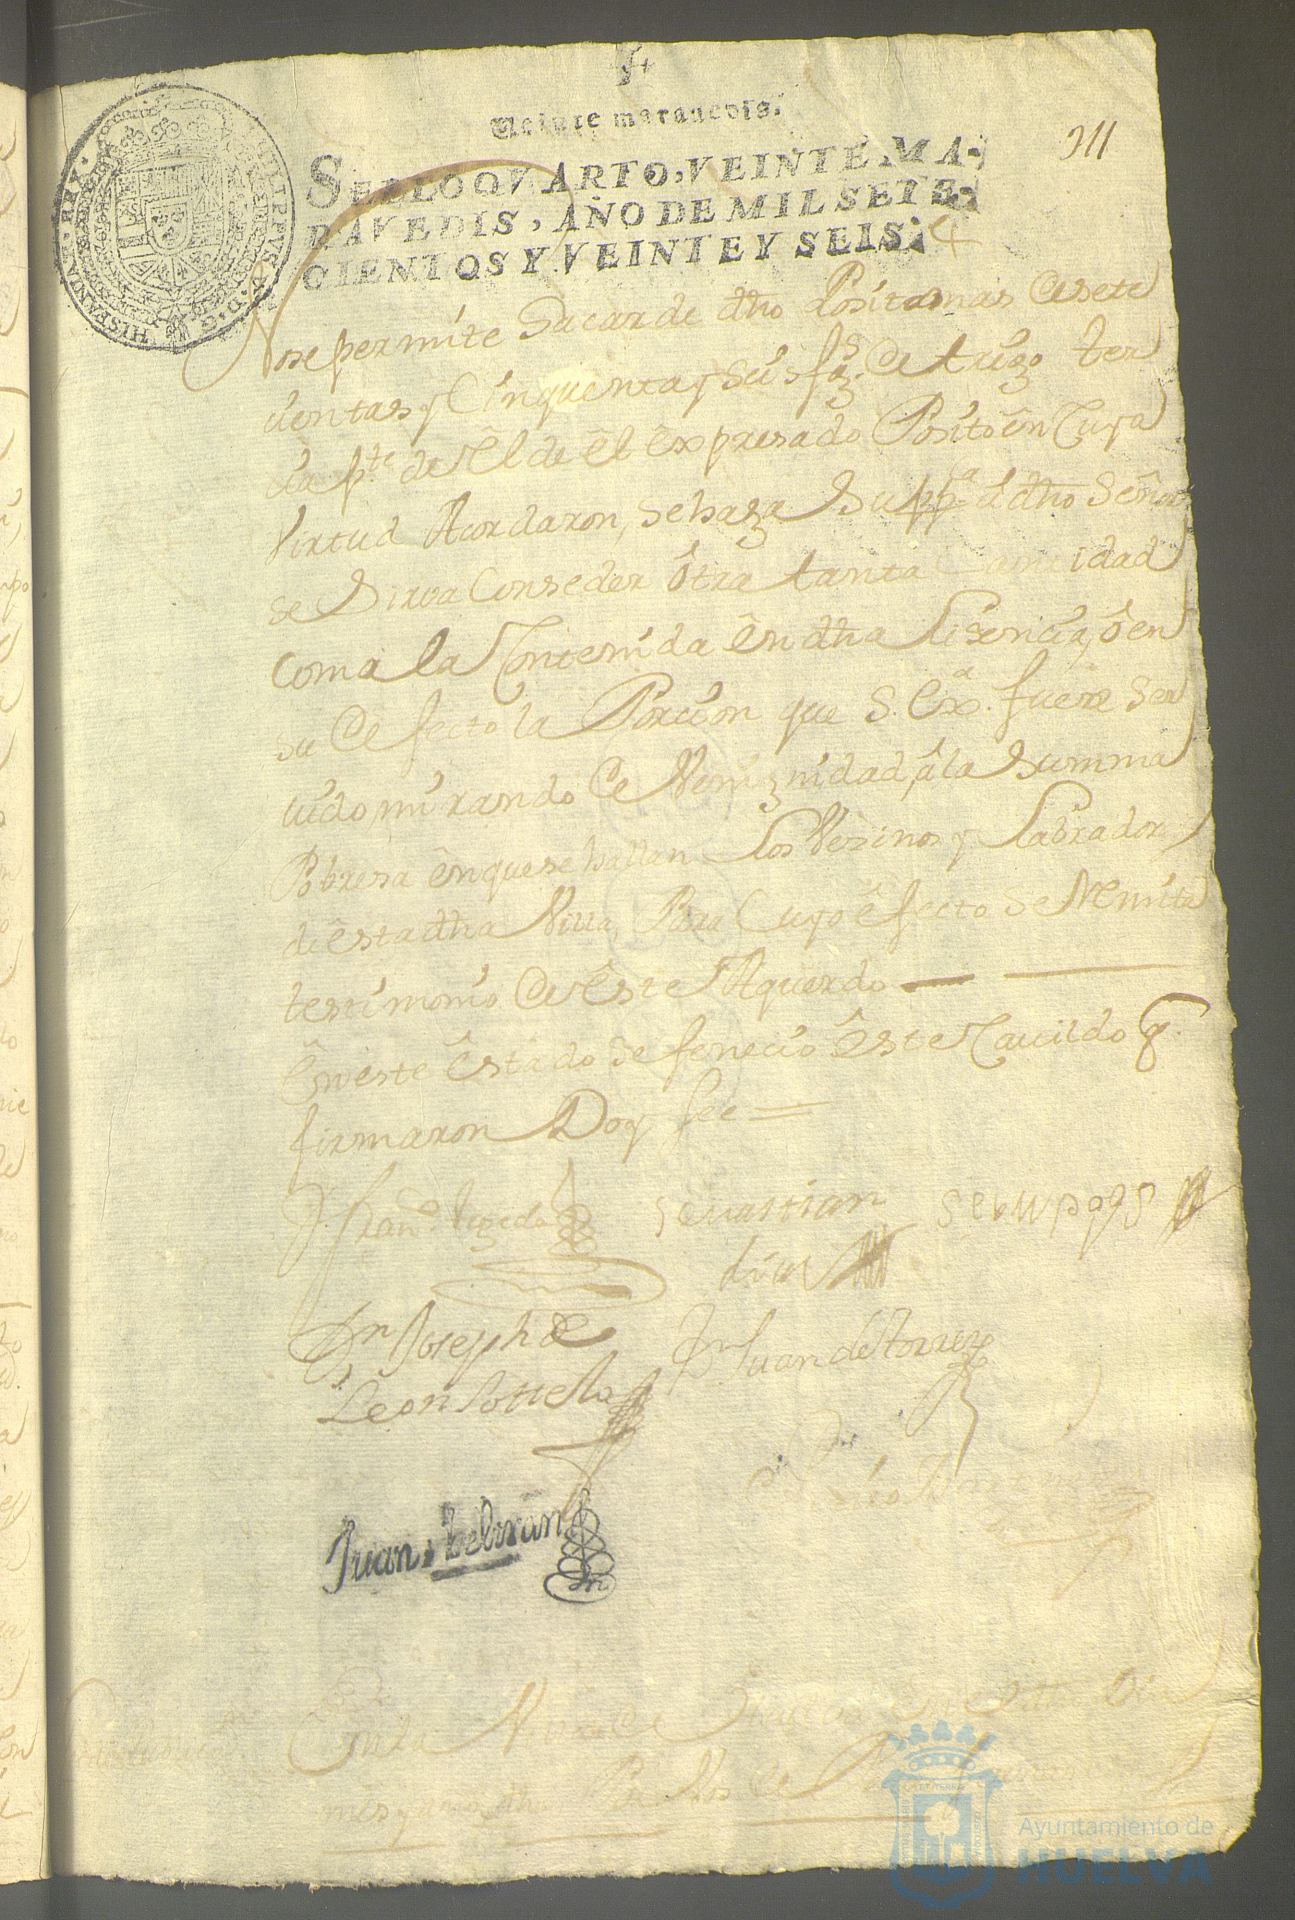 Veinte maravedis.
SELLO QVARTO, VEINTE MA-
RAVEDIS, AÑO DE MIL SETE-
CIENTOS Y VEINTE Y SEIS.
311
HISPANIARUM REX PHILIPPVS V D G
No se permite Sacar de dho Posito mas de sete
cientas y Cinquenta y seis fgs de trigo ter
cia pte de el de el expresado Posito en Cuya
Virtud Acordaron, se haga Suppca a dho Señor
se Sirva Conseder otra tanta Cantidad
como la Contenida en dha lisencia, o en
su Defecto la Porcion que S. Exa. fuere ser
uido, mirando De Venignidad, a la Summa
Pobresa en que se hallan los Vesinos y Labradores
de esta dha Villa, Para Cuyo efecto se Remita
testimonio De Este Aquerdo
En este Estado se fenecio este Cauildo q
firmaron Doy fee =
Sevastian
dias
Dn Joseph de
Leon Sottelo
Dn Juan de Torres
Juan Beltran
En la Villa de
mes y año dho
Ayuntamiento de
HUELVA